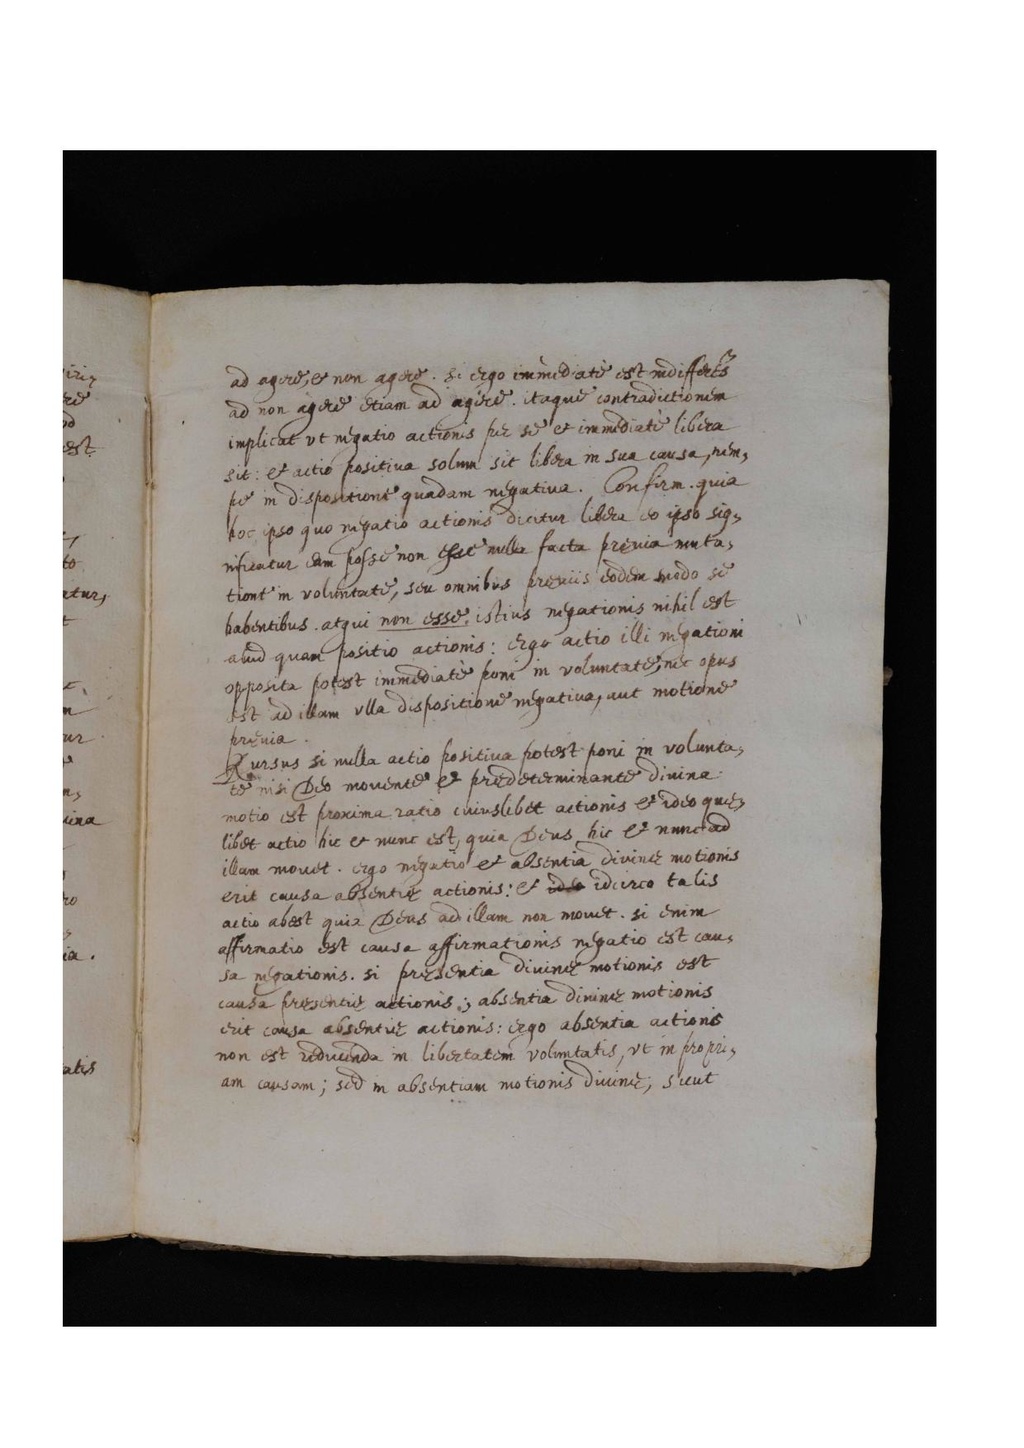 ad agere, et non agere. si ergo immediatè est indifferẽs
ad non agere etiam ad agere. itaque contradictionem
implicat vt negatio actionis per se et immediatè libera
sit: et actio positiua solum sit libera in sua causa, nem,
pe in dispositione quadam negatiua. Confirm. quia
hoc ipso quo negatio actionis dicitur libera eo ipso sig,
nificatur eam posse non esse nulla facta preuia muta,
tione in voluntate, seu omnibus preuiis eodem modo se
habentibus. atqui non esse istius negationis nihil est
aliud quam positio actionis: ergo actio illi negationi
opposita potest immediatè poni in voluntate, nec opus
est ad illam vlla dispositione negatiua, aut motione
preuia.
Rursus si nulla actio positiua potest poni in volunta,
te nisi Deo mouente et predeterminante diuina
motio est proxima ratio cuiuslibet actionis et ideo quę,
libet actio hic et nunc est, quia Deus hic et nunc ad
illam mouet. ergo negatio et absentia diuinę motionis
erit causa absentię actionis: et idcirco talis
actio abest quia Deus ad illam non mouet. si enim
affirmatio est causa affirmationis negatio est cau,
sa negationis. si pręsentia diuinę motionis est
causa pręsentię actionis; absentia diuinę motionis
erit causa absentię actionis: ergo absentia actionis
non est reducenda in libertatem voluntatis, vt in propri,
am causam; sed in absentiam motionis diuinę, sicut